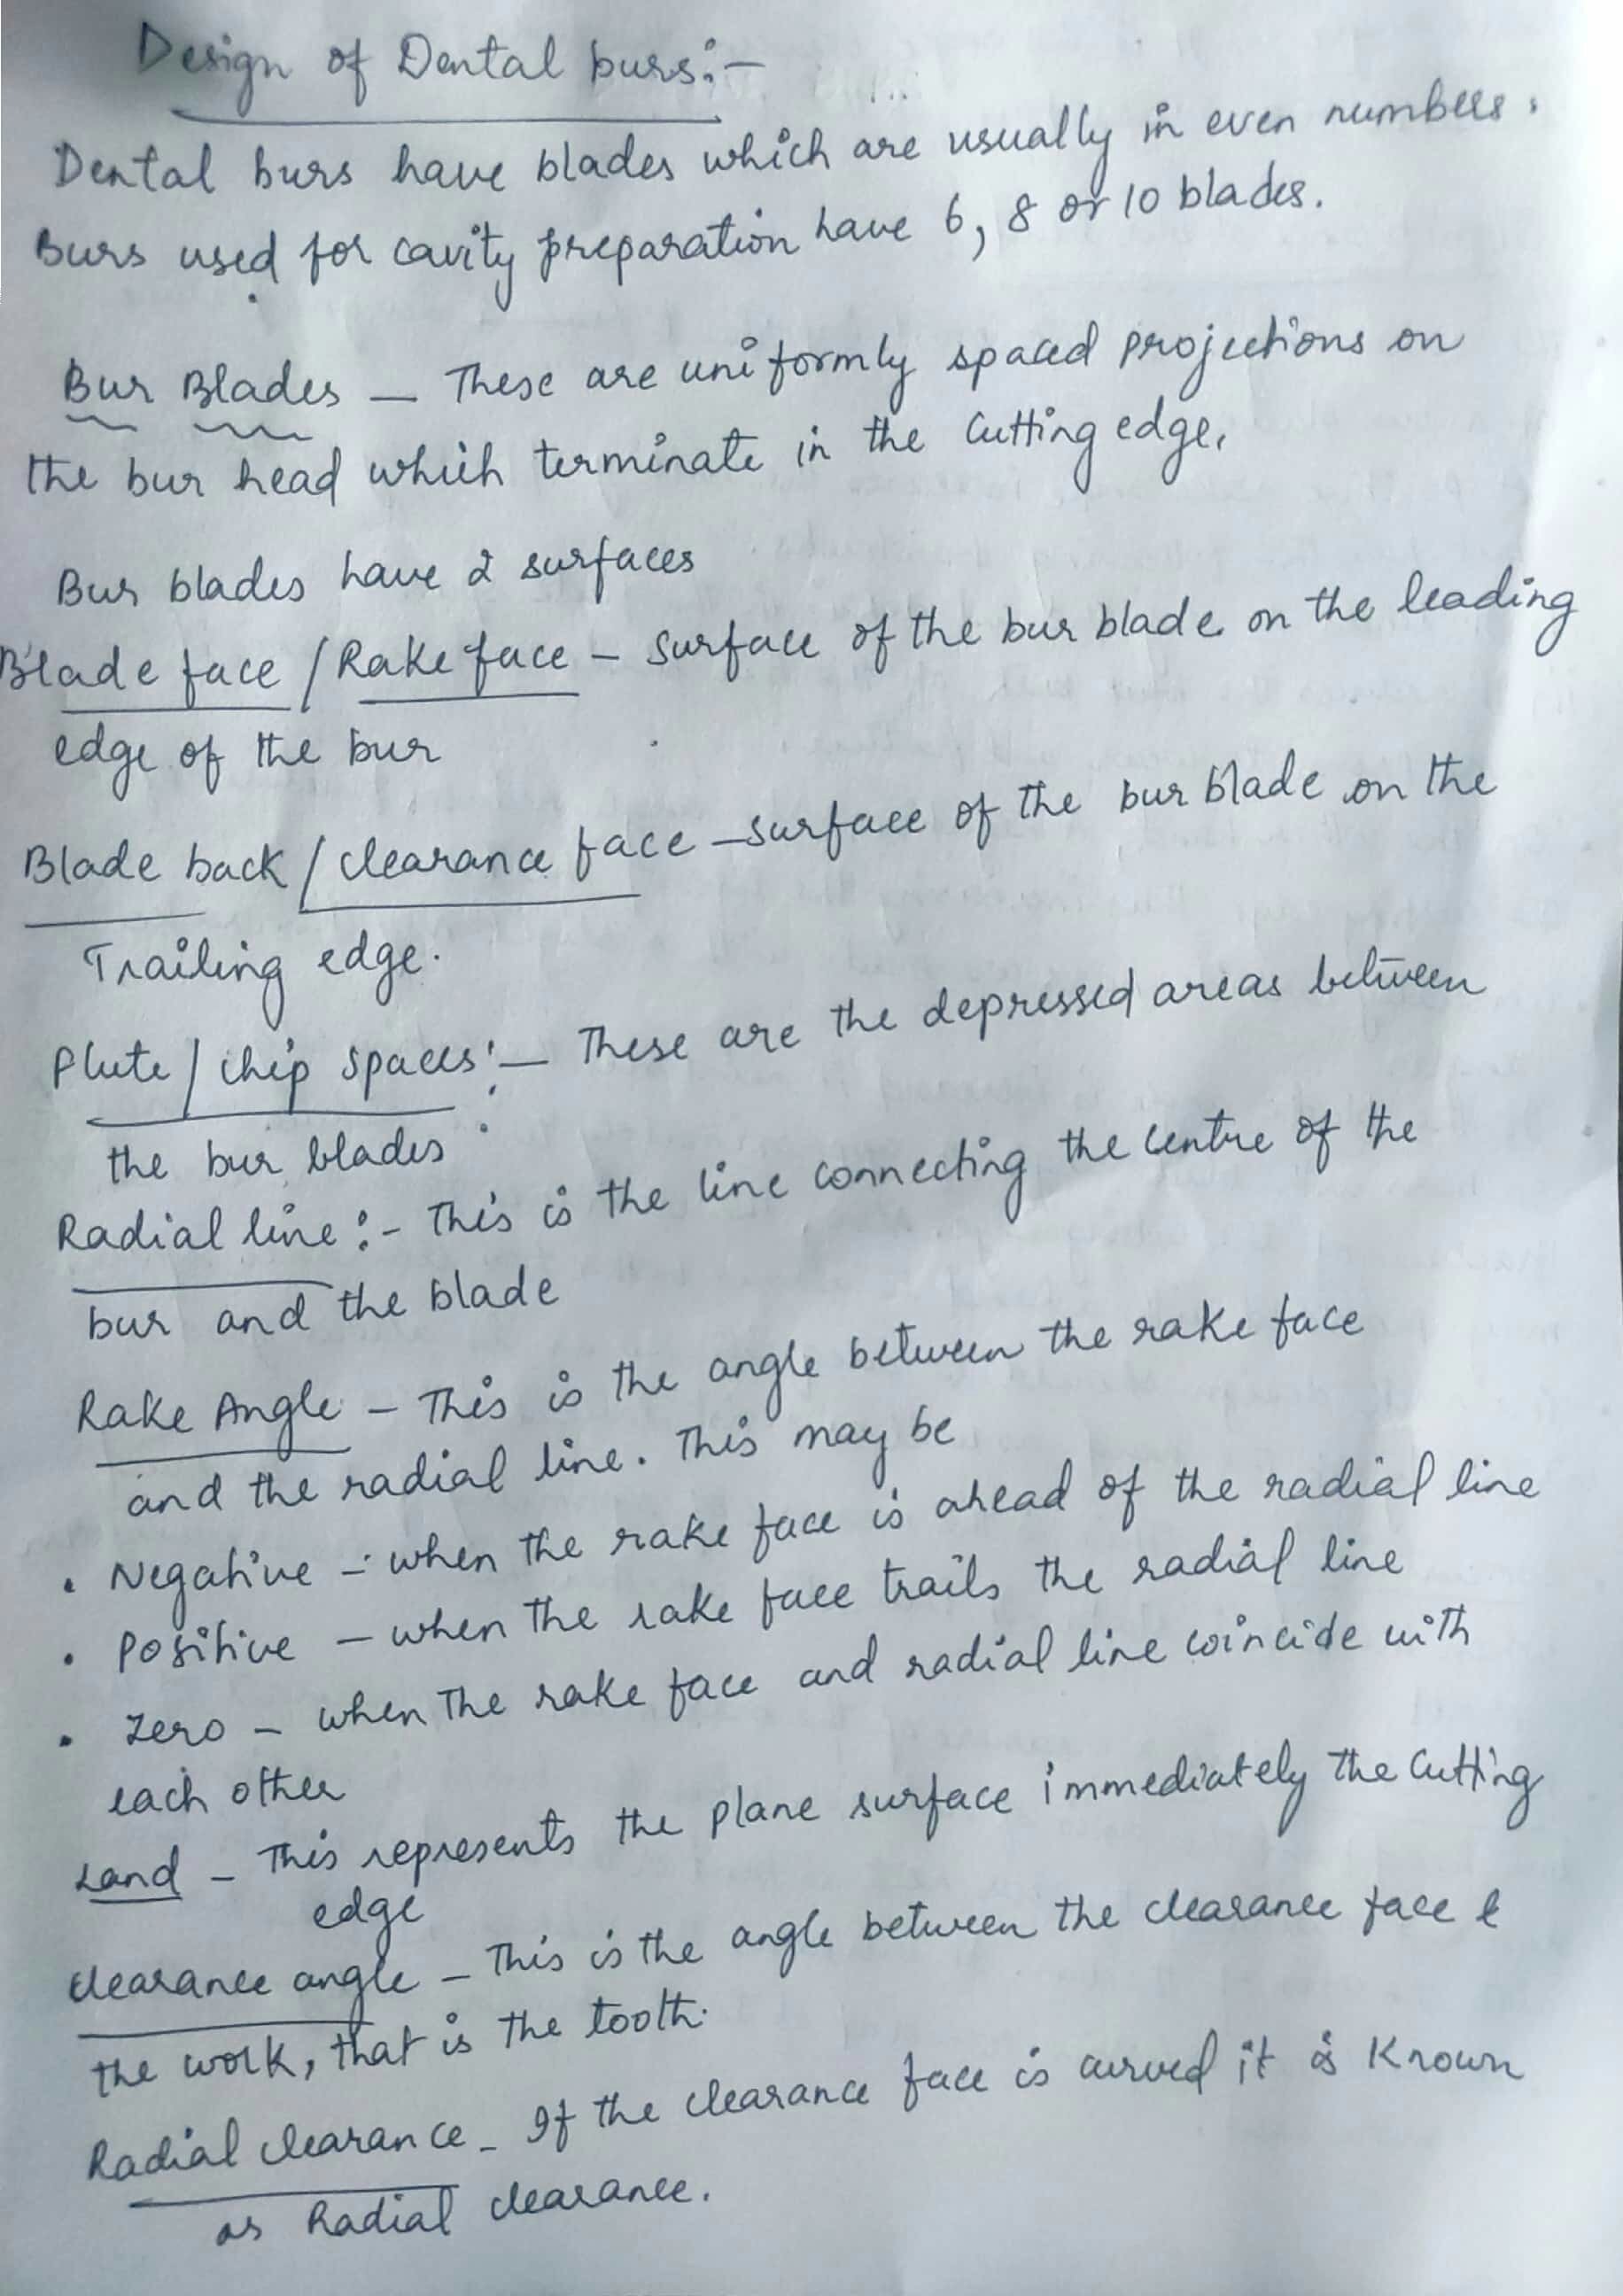 Design of Dental burs:-
Dental burs have blades which are usually in even numbers.
Burs used for cavity preparation have 6, 8 or 10 blades.
Bur Blades — These are uniformly spaced projections on
the bur head which terminate in the Cutting edge.
Bur blades have 2 surfaces
Blade face / Rake face - Surface of the bur blade on the leading
edge of the bur
Blade back / Clearance face - Surface of the bur blade on the
Trailing edge.
Flute / Chip Spaces:- These are the depressed areas between
the bur blades
Radial line:- This is the line connecting the centre of the
bur and the blade
Rake Angle - This is the angle between the rake face
and the radial line. This may be
• Negative - when the rake face is ahead of the radial line
• Positive - when the rake face trails the radial line
• Zero - when the rake face and radial line coincide with
each other
Land - This represents the plane surface immediately the Cutting
edge
Clearance angle - This is the angle between the clearance face &
the work, that is the tooth.
Radial clearance - If the clearance face is curved it is known
as Radial clearance.